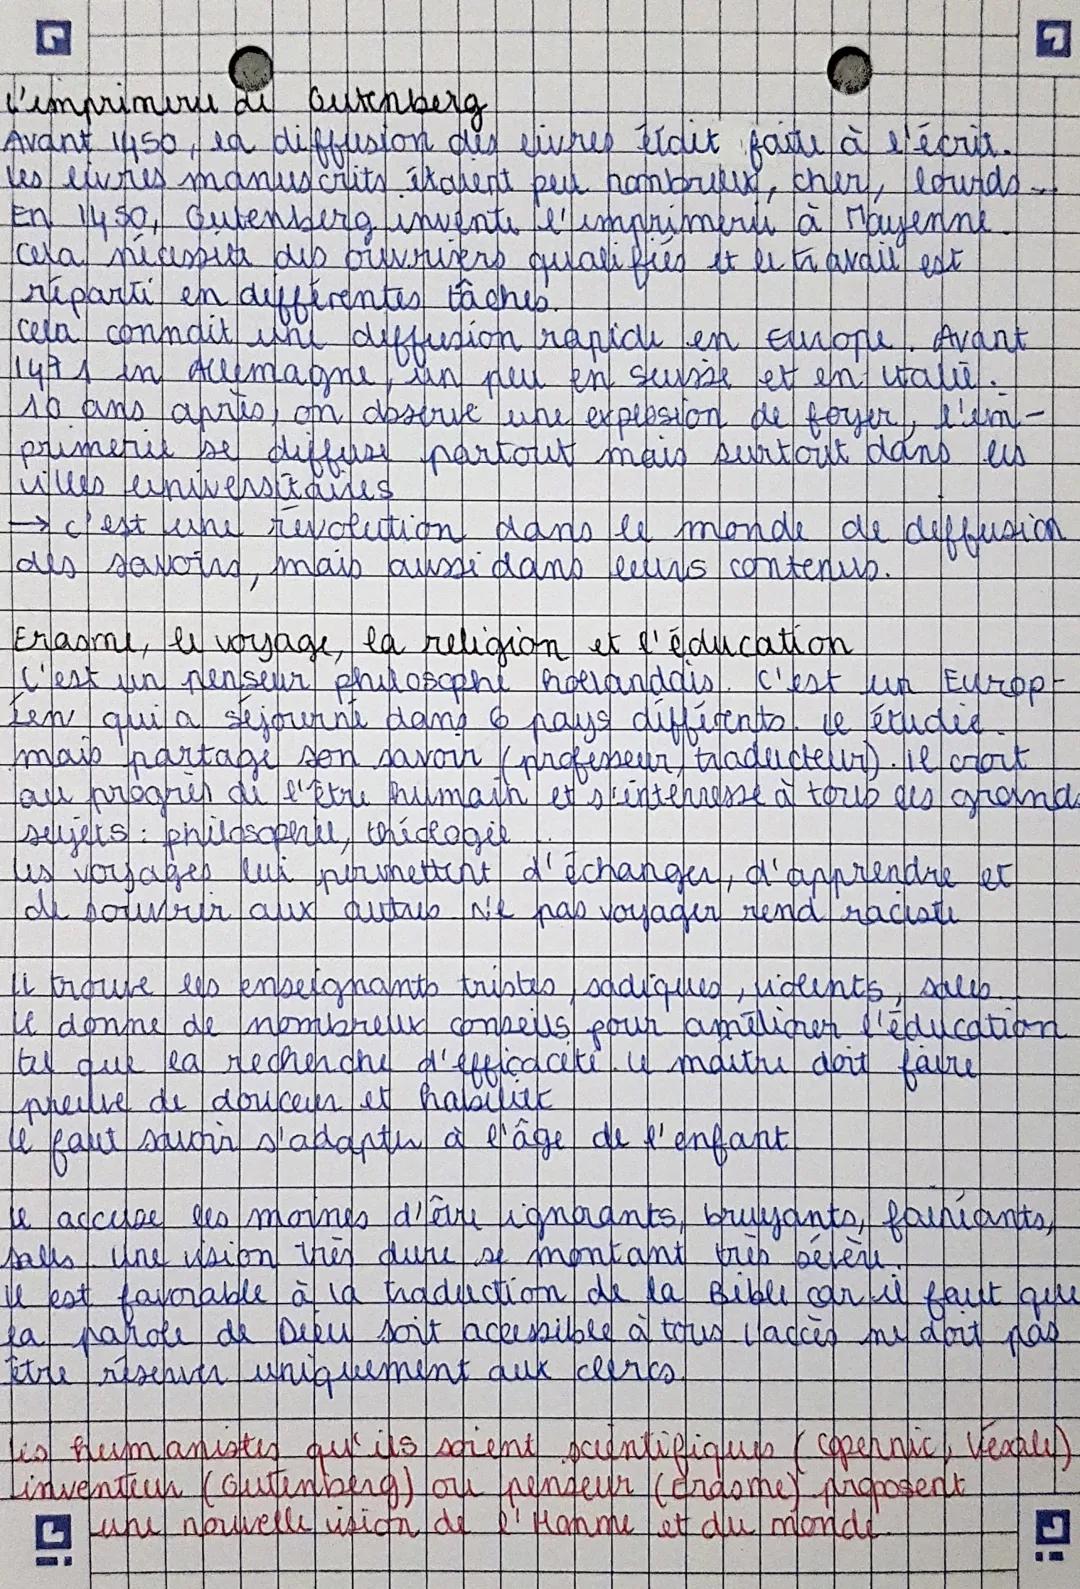 L'imprimerie de Gutenberg
Avant 1450, la diffusion des livres était faite à l'écrit.
Les livres manuscrits étaient peu nombreux, cher, lourds...
En 1450, Gutenberg invente l'imprimerie à Mayenne.
Cela nécessita des ouvriers qualifiés et le travail est
réparti en différentes tâches.
Cela connait une diffusion rapide en Europe. Avant
1471 en Allemagne, un peu en suisse et en italie.
10 ans après, on observe une explosion de foyer, l'im-
primerie se diffuse partout mais surtout dans les
villes universitaires
→ c'est une révolution dans le monde de diffusion
des savoirs, mais aussi dans leurs contenus.
Erasme, le voyage, la religion et l'éducation
C'est un penseur philosophe hollandais. C'est un Europ-
éen qui a séjourné dans 6 pays différents. Il étudie
mais partage son savoir (professeur, traducteur). Il croit
au progrès de l'être humain et s'intéresse à tous les grands
sujets : philosophie, théologie
Les voyages lui permettent d'échanger, d'apprendre et
de souvrir aux autres. Ne pas voyager rend raciste
Il trouve les enseignants tristes, sadiques, violents, sales
Il donne de nombreux conseils pour améliorer l'éducation
tel que la recherche d'efficacité. Le maitre doit faire
preuve de douceur et habilité
Il faut savoir s'adapter à l'âge de l'enfant
Il accuse les moines d'être ignorants, bruyants, fainéants,
sales. Une vision très dure se montant très sévère.
Il est favorable à la traduction de la Bible car il faut que
la parole de Dieu soit accessible à tous l'accès ne doit pas
être réserver uniquement aux clercs.
Les humanistes qu'ils soient scientifiques (Copernic, Vésale)
inventeur (Gutenberg) ou penseur (Erasme) proposent
une nouvelle vision de l'Homme et du monde